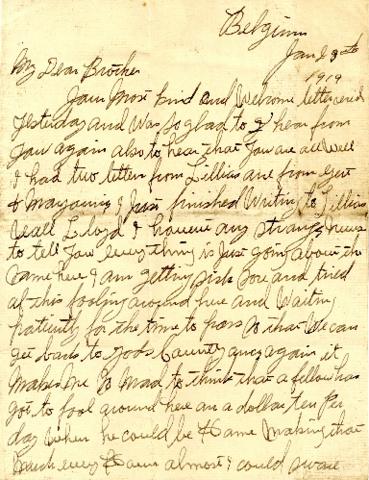 Belgium
Jan 23rd
1919
My Dear Brother
Your Most kind and Welcome letter
Yesterday and Was So glad to hear from
You again also to hear that You are all Well
I had two letters from Lillie one from
& I Just finished Writing to
Well Lloyd I havent any strange News
to tell You every thing is Just going about the
Same here I am getting Sick Sore and tired
of this fooling around here and Waiting
patiently for the time to pass So that We can
get back to Gods Country again it
Makes me So Mad to think that a fellow has
got to fool around here on a dollar ten Per
day When he could be Home Making that
Much every Hour almost I could swear